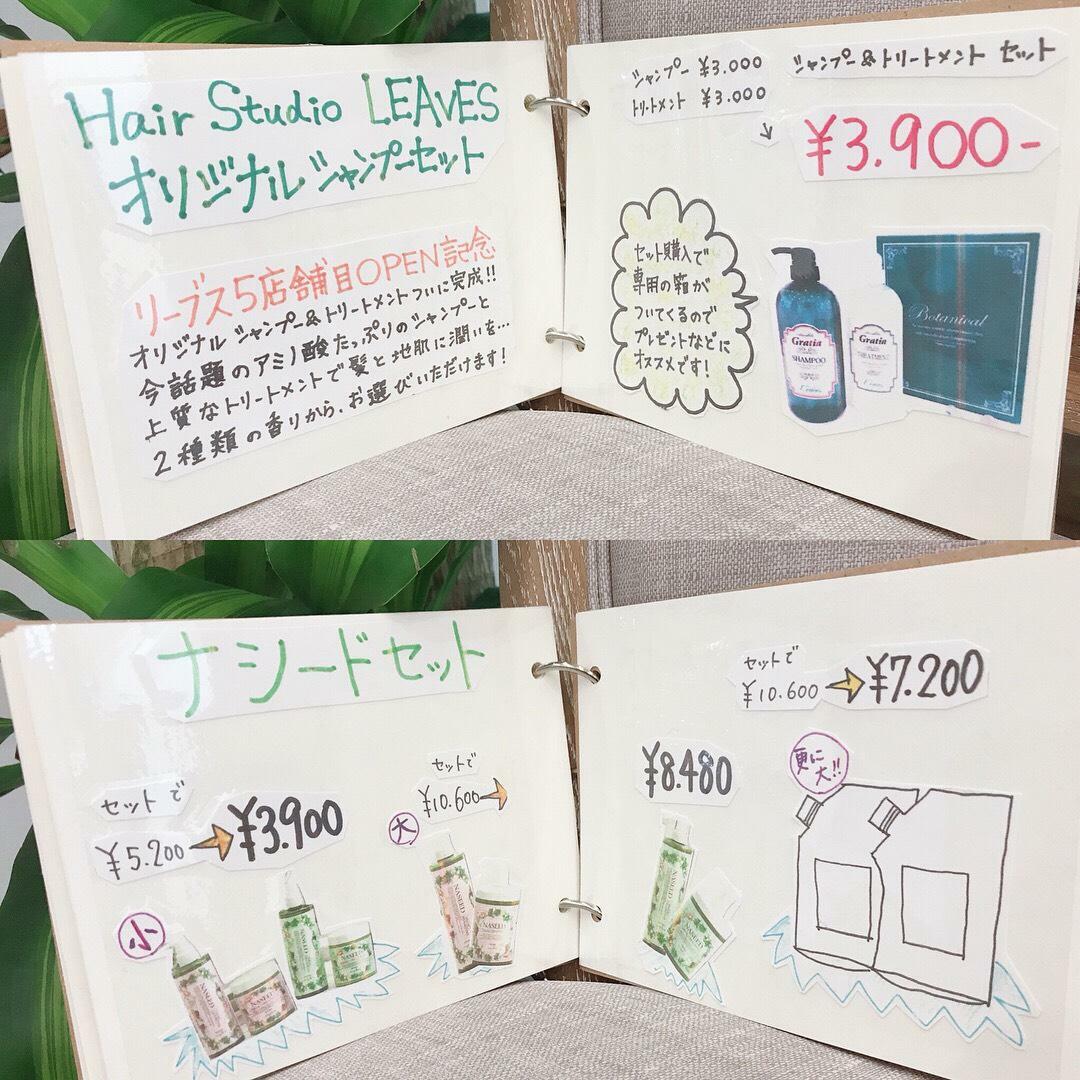 Hair Studio LEAVES
オリジナルシャンプーセット
リーブス5店舗目OPEN記念
オリジナルシャンプー&トリートメントついに完成!!
今話題のアミノ酸たっぷりのシャンプーと
上質なトリートメントで髪と地肌に潤いを…
2種類の香りから、お選びいただけます!
シャンプー ¥3.000
トリートメント ¥3.000
シャンプー&トリートメント セット
¥3.900-
セット購入で
専用の箱が
ついてくるので
プレゼントなどに
オススメです!
Gratia
SHAMPOO
Gratia
TREATMENT
Botanical
ナシードセット
セットで
¥5.200
¥3.900
小
NASEED
NASEED
セットで
¥10.600
大
NASEED
NASEED
¥8.480
NASEED
セットで
¥10.600
¥7.200
更に
大!!